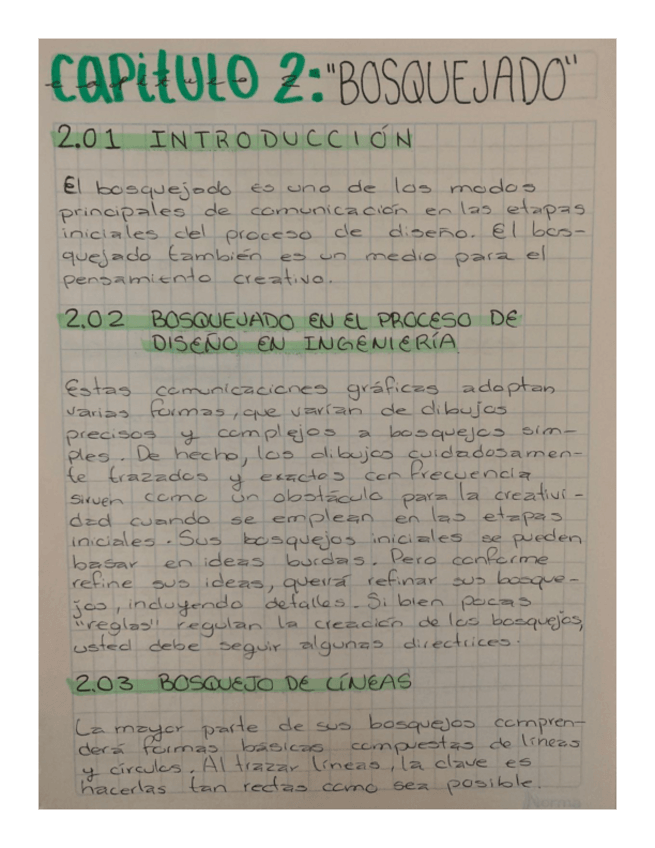 CAPITULO 2: "BOSQUEJADO"
2.01 INTRODUCCIÓN
El bosquejado es uno de los modos
principales de comunicación en las etapas
iniciales del proceso de diseño. El bos-
quejado también es un medio para el
pensamiento creativo.
2.02 BOSQUEJADO EN EL PROCESO DE
DISEÑO EN INGENIERÍA
Estas comunicaciones gráficas adoptan
varias formas, que varían de dibujos
precisos y complejos a bosquejos sim-
ples. De hecho, los dibujos cuidadosamen-
te trazados y exactos con frecuencia
sirven como un obstáculo para la creativi-
dad cuando se emplean en las etapas
iniciales. Sus bosquejos iniciales se pueden
basar en ideas burdas. Pero conforme
refine sus ideas, querrá refinar sus bosque-
jos, incluyendo detalles. Si bien pocas
"reglas" regulan la creación de los bosquejos,
usted debe seguir algunas directrices.
2.03 BOSQUEJO DE LÍNEAS
La mayor parte de sus bosquejos compren-
derá formas básicas compuestas de líneas
y círculos. Al trazar líneas, la clave es
hacerlas tan rectas como sea posible.
Norma